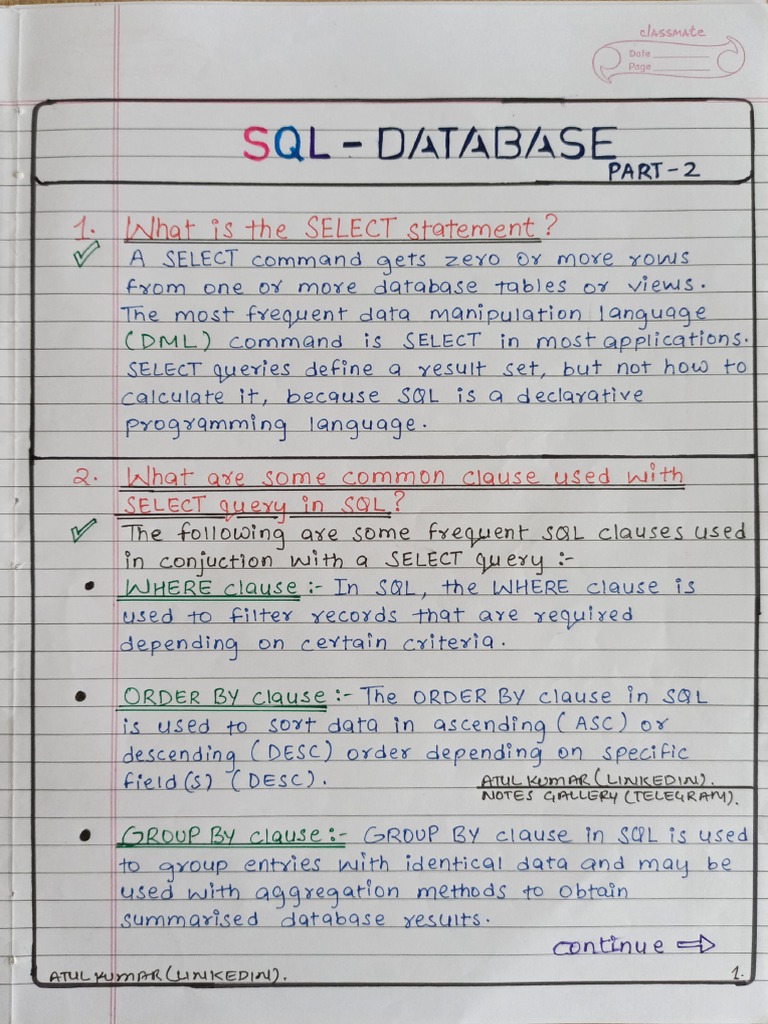 classmate
Date
Page
SQL - DATABASE
PART-2
1. What is the SELECT statement?
A SELECT command gets zero or more rows
from one or more database tables or views.
The most frequent data manipulation language
(DML) command is SELECT in most applications.
SELECT queries define a result set, but not how to
calculate it, because SQL is a declarative
programming language.
2. What are some common clause used with
SELECT query in SQL?
The following are some frequent SQL clauses used
in conjuction with a SELECT query :-
• WHERE clause :- In SQL, the WHERE clause is
used to filter records that are required
depending on certain criteria.
• ORDER BY clause :- The ORDER BY clause in SQL
is used to sort data in ascending (ASC) or
descending (DESC) order depending on specific
field(s) (DESC).
ATUL KUMAR (LINKEDIN).
NOTES GALLERY (TELEGRAM).
• GROUP BY clause :- GROUP BY clause in SQL is used
to group entries with identical data and may be
used with aggregation methods to obtain
summarised database results.
continue ⇒
ATUL KUMAR (LINKEDIN). 1.